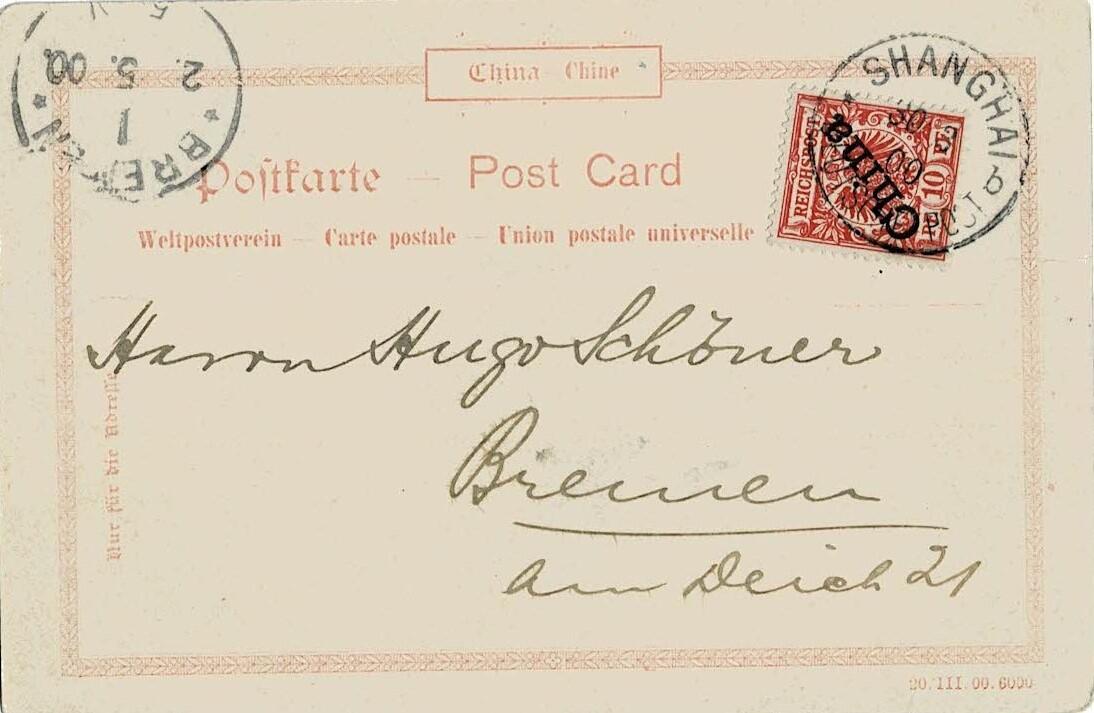 China Chine
Postkarte — Post Card
Weltpostverein — Carte postale — Union postale universelle
SHANGHAI
b
30 3
00
REICHSPOST
10
China
BREMEN
1
2. 5. 00.
5 - N
Herrn Hugo Schöner
Bremen
am Deich 21
Nur für die Adresse
20. III. 00. 6000